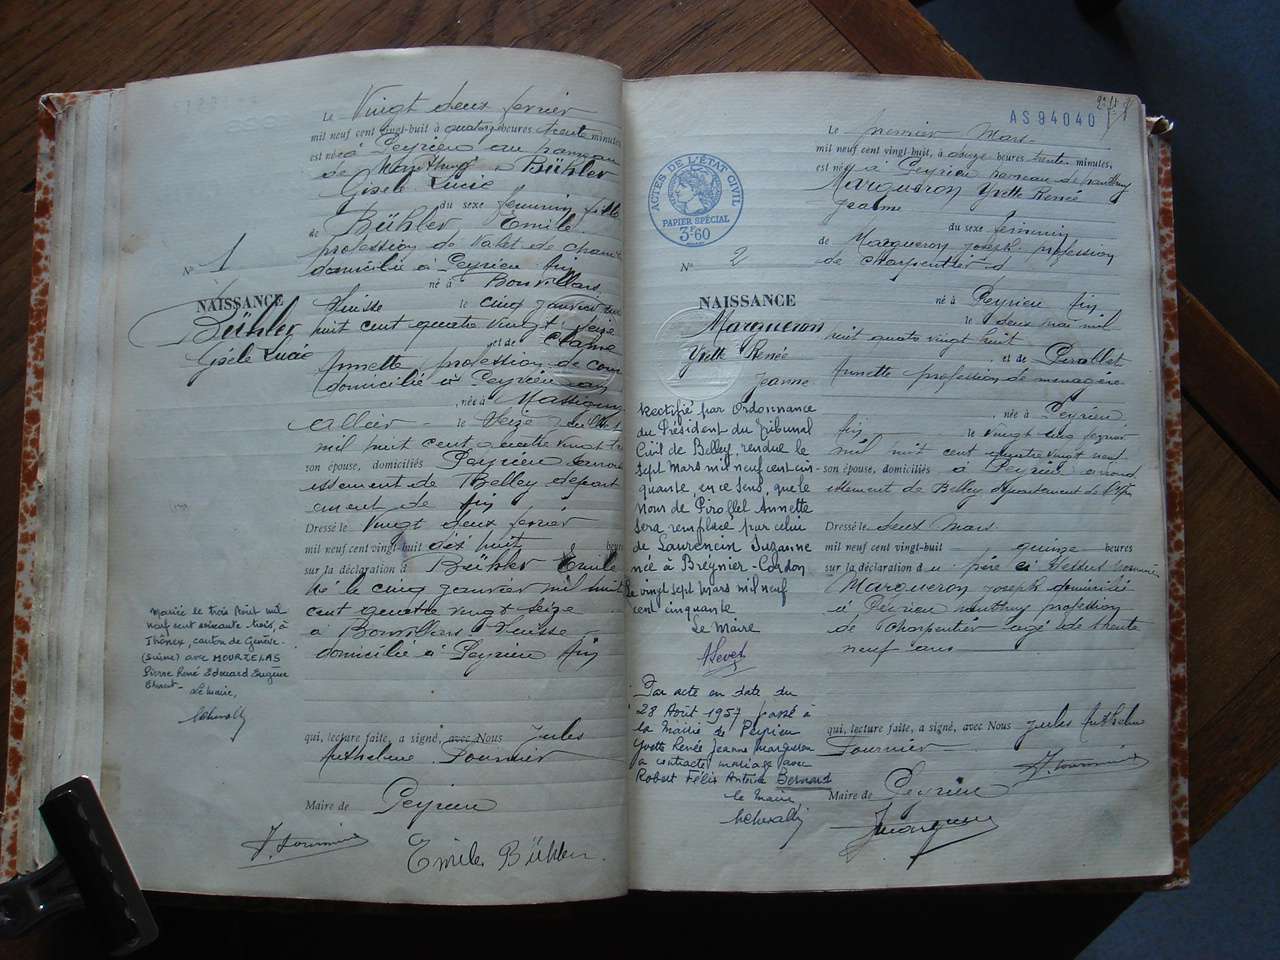 Le Vingt deux fevrier
mil neuf cent vingt-huit à quatorze heures trente minutes
est née à Peyrieu au hameau
de Bühler
Gisèle Lucie
du sexe feminin fille
de Bühler Emile
profession de Valet de cham
domicilié à Peyrieu Ain
né à Bonvillars
Suisse le cinq janvier mil
huit cent quatre vingt seize
et de
Annette profession de
domicilié à Peyrieu Ain
, née à
Allier le
mil huit cent quatre vingt
son épouse, domiciliés Peyrieu arron
issement de Belley départ
ement de Ain
Dressé le Vingt deux fevrier
mil neuf cent vingt-huit dix huit heures
sur la déclaration d Bühler Emile
né le cinq janvier mil huit
cent quatre vingt seize
à Bonvillars Suisse
domicilié à Peyrieu Ain
qui, lecture faite, a signé, avec Nous Jules
Anthelme Fournier
Maire de Peyrieu
J. Fournier
Emile Bühler.
N° 1
NAISSANCE
Bühler
Gisèle Lucie
Mariée le trois Août mil
neuf cent soixante trois, à
Thônex, canton de Genève-
(Suisse) avec MOURZELAS
Pierre René Edouard Eugène
Le Maire,
AS94040
ACTES DE L'ÉTAT CIVIL
PAPIER SPÉCIAL
3F60
N° 2
NAISSANCE
Margueron
Yvette Renée
Jeanne
Rectifié par Ordonnance
du Président du Tribunal
Civil de Belley, rendue le
sept Mars mil neuf cent cin-
quante, en ce sens, que le
nom de Pirollet Annette
sera remplacé par celui
de Laurencin Suzanne
née à Brégnier-Cordon
Le vingt sept Mars mil neuf
cent cinquante
Le Maire
Par acte en date du
28 Août 1957 passé à
la Mairie de Peyrieu
Yvette Renée Jeanne Margueron
a contracté mariage avec
Robert Félix Antoine Bernard
Le Maire,
Le premier Mars
mil neuf cent vingt-huit, à onze heures trente minutes,
est née à Peyrieu hameau de
Margueron Yvette Renée
Jeanne
du sexe feminin
de Margueron Joseph profession
de charpentier
né à Peyrieu Ain
le deux mai mil
huit quatre vingt huit
et de Pirollet
Annette profession de menagère
, née à Peyrieu
Ain le vingt cinq
mil huit cent quatre vingt neuf
son épouse, domiciliés à Peyrieu arrond
issement de Belley département de l'Ain
Dressé le deux Mars
mil neuf cent vingt-huit quinze heures
sur la déclaration du père
Margueron Joseph domicilié
à Peyrieu profession
de charpentier agé de trente
neuf ans
qui, lecture faite, a signé, avec Nous Jules Anthelme
Fournier
J. Fournier
Maire de Peyrieu
J Margueron